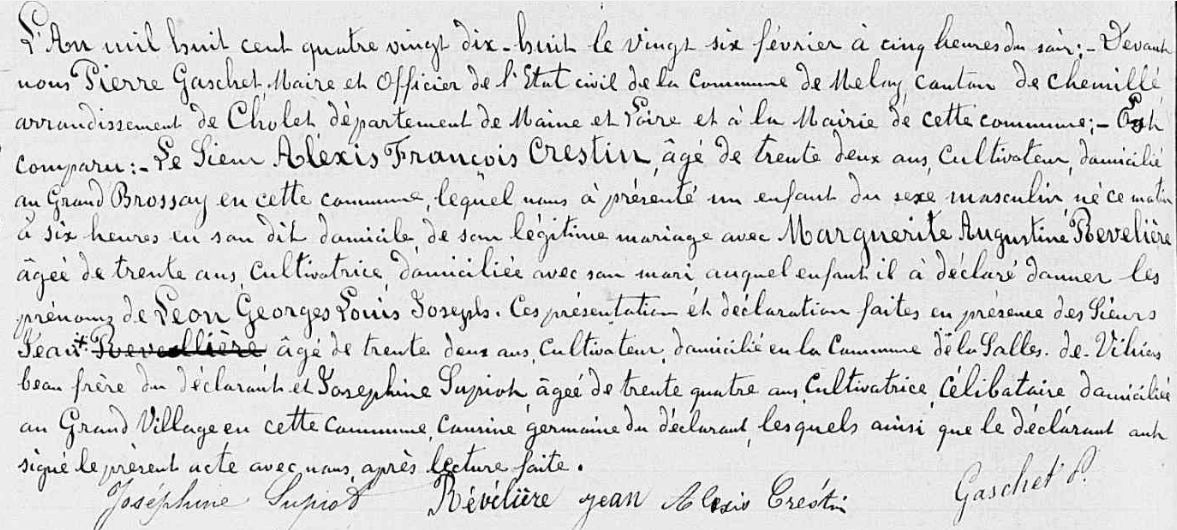 L'An mil huit cent quatre vingt dix-huit le vingt six février à cinq heures du soir; - Devant
nous Pierre Gaschet, Maire et Officier de l'Etat civil de la Commune de Melay, canton de Chemillé
arrondissement de Cholet, département de Maine et Loire et à la Mairie de cette commune; -
comparu: - Le Sieur Alexis François Crestin, âgé de trente deux ans, Cultivateur, domicilié
au Grand Brossay en cette commune, lequel nous à présenté un enfant du sexe masculin, né ce matin
à six heures en son dit domicile, de son légitime mariage avec Marguerite Augustine Revelière
âgée de trente ans, Cultivatrice, domiciliée avec son mari auquel enfant il à déclaré donner les
prénoms de Léon Georges Louis Joseph. Ces présentation et déclaration faites en présence des Sieurs
Jean Reveillière âgé de trente deux ans, Cultivateur, domicilié en la Commune de la Salles-de-Vihiers
beau frère du déclarant et Josephine Supiot, âgée de trente quatre ans, Cultivatrice, Célibataire domiciliée
au Grand Village en cette Commune, Cousine germaine du déclarant, lesquels ainsi que le déclarant ont
signé le présent acte avec nous, après lecture faite.
Joséphine Supiot Révélière Jean Alexis Crestin Gaschet P.